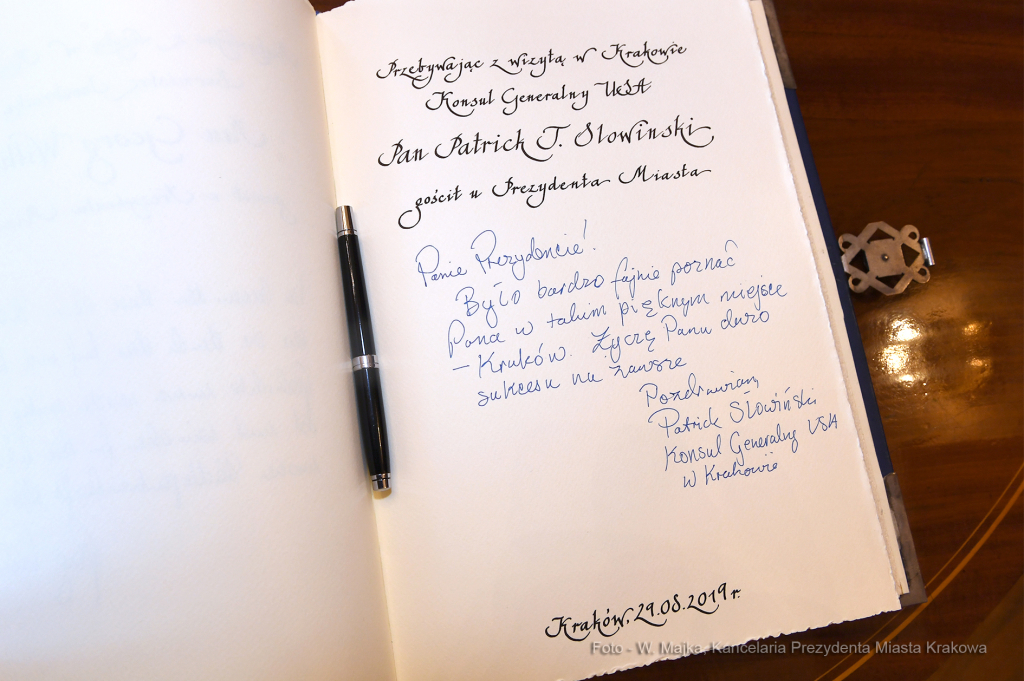 Przebywając z wizytą w Krakowie
Konsul Generalny USA
Pan Patrick T. Slowinski
gościł u Prezydenta Miasta
Panie Prezydencie!
Było bardzo fajnie poznać
Pana w takim pięknym miejsce
– Kraków. Życzę Panu dużo
sukcesu na zawsze
Pozdrawiam,
Patrick Słowiński
Konsul Generalny USA
w Krakowie
Kraków, 29.08.2019 r.
Foto - W. Majka, Kancelaria Prezydenta Miasta Krakowa